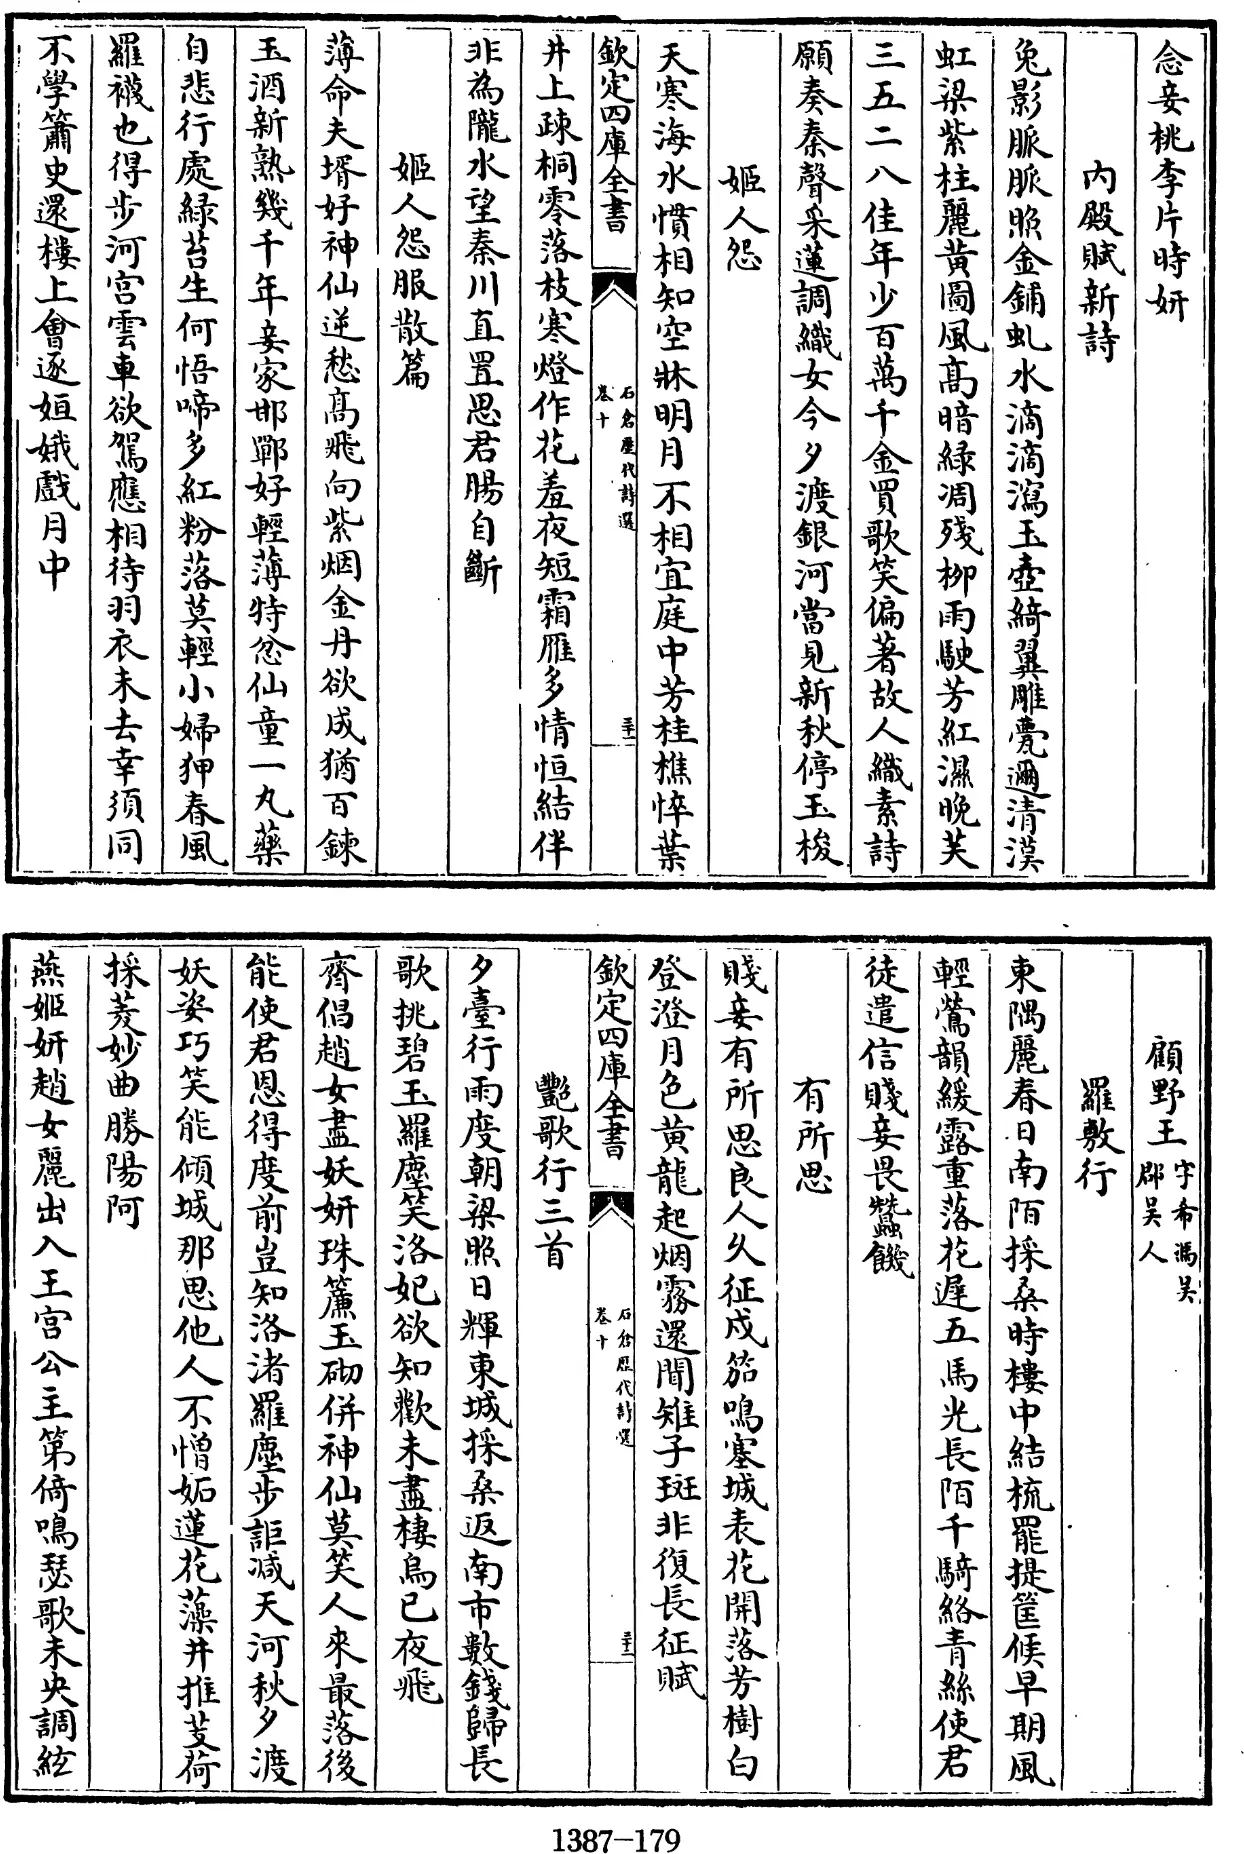 念妾桃李片時妍
内殿賦新詩
兔影脈脈照金鋪虬水滴滴瀉玉壺綺翼雕甍邇清漢
虹梁紫柱麗黄圖風髙暗緑凋殘栁雨駛芳紅濕晩芙
三五二八佳年少百萬千金買歌笑偏著故人織素詩
願奏秦聲采蓮調織女今夕渡銀河當見新秋停玉梭
姬人怨
天寒海水慣相知空牀明月不相宜庭中芳桂憔悴葉
井上疎桐零落枝寒燈作花羞夜短霜雁多情恒結伴
非為隴水望秦川直置思君腸自斷
姬人怨服散篇
薄命夫壻好神仙逆愁髙飛向紫烟金丹欲成猶百鍊
玉酒新熟幾千年妾家邯鄲好輕薄特忿仙童一丸藥
自悲行處緑苔生何悟啼多紅粉落莫輕小婦狎春風
羅襪也得步河宫雲車欲駕應相待羽衣未去幸須同
不學簫史還樓上會逐姮娥戲月中
欽定四庫全書
石倉歷代詩選
卷十
三十一
顧野王字希馮吳
郡吳人
羅敷行
東隅麗春日南陌採桑時樓中結梳罷提筐候早期風
輕鶯韻緩露重落花遲五馬光長陌千騎絡青絲使君
徒遣信賤妾畏蠶饑
有所思
賤妾有所思良人久征戍笳鳴塞城表花開落芳樹白
登澄月色黄龍起烟霧還聞雉子斑非復長征賦
豔歌行三首
夕臺行雨度朝梁照日輝東城採桑返南市數錢歸長
歌挑碧玉羅塵笑洛妃欲知歡未盡棲烏已夜飛
齊倡趙女盡妖妍珠簾玉砌併神仙莫笑人來最落後
能使君恩得度前豈知洛渚羅塵步詎減天河秋夕渡
妖姿巧笑能傾城那思他人不憎妬蓮花藻井推芰荷
採菱妙曲勝陽阿
燕姬妍趙女麗出入王宫公主第倚鳴瑟歌未央調絃
欽定四庫全書
石倉歷代詩選
卷十
三十二
1387-179